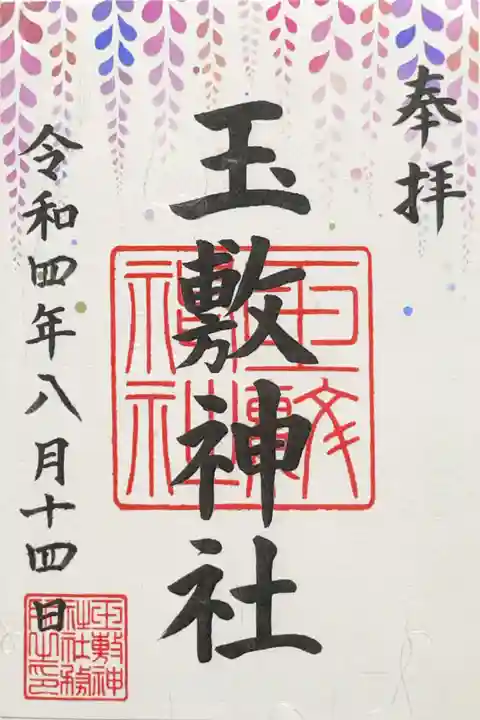 奉拝
玉敷神社
令和四年八月十四日
玉敷神社
玉敷神
社社務